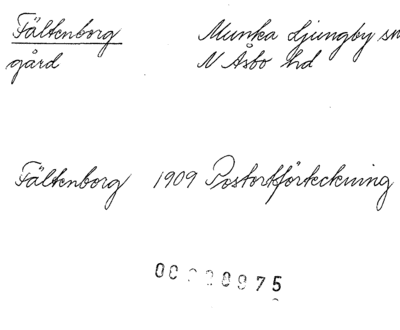 Fältenborg Munka Ljungby sn
gård N Åsbo hd
Fältenborg 1909 Postortförteckning